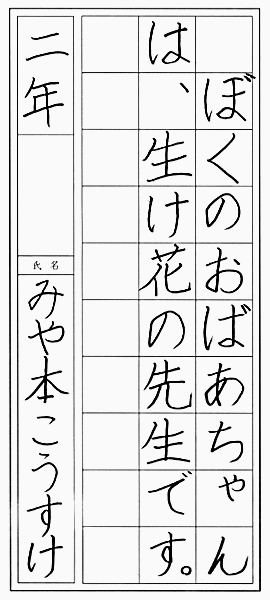 ぼくのおばあちゃん
は、生け花の先生です。
二年
氏名
みや本こうすけ